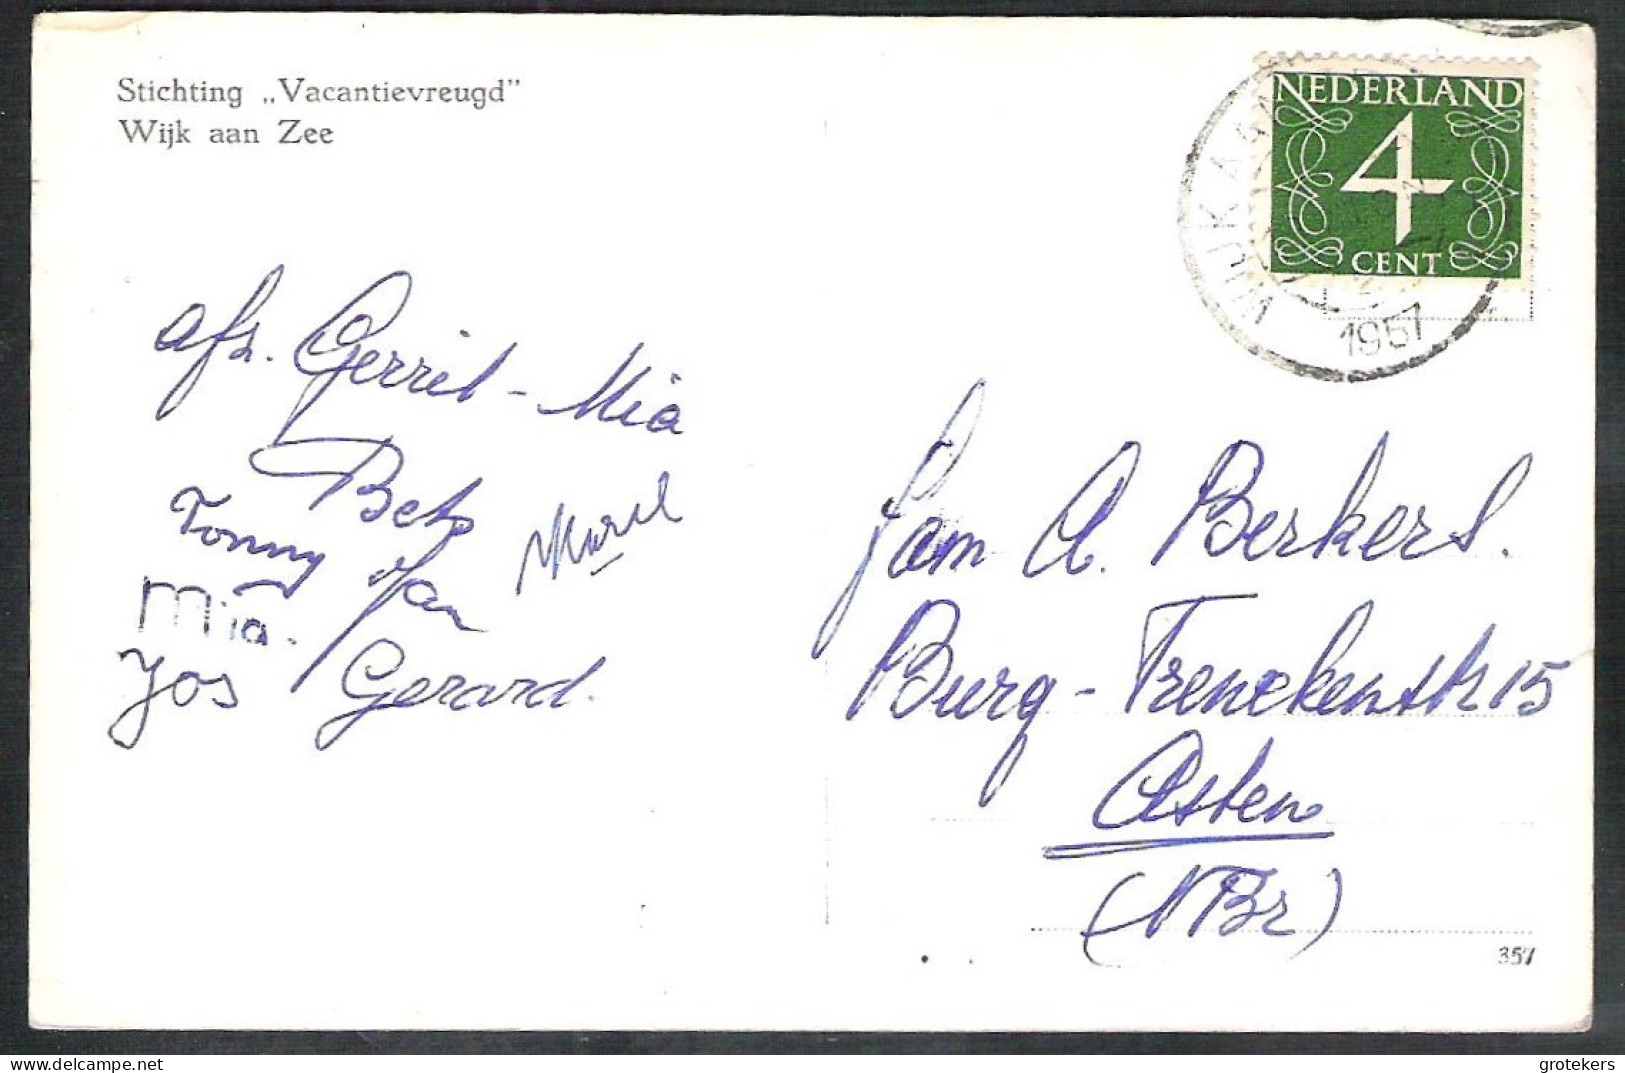 Stichting „Vacantievreugd”
Wijk aan Zee
NEDERLAND
4
CENT
WIJK A
1957
afz. Gerrit - Mia
Bets
Tonny Jan
Mia.
Jos Gerard.
Fam A. Berkers.
Burg - Frenckenstr 15
Asten
(NBr)
357
grotekers